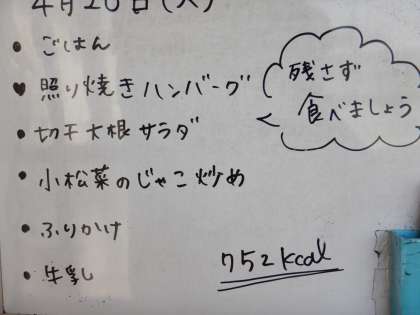 4月20日(火)
・ごはん
♥照り焼きハンバーグ
・切干大根サラダ
・小松菜のじゃこ炒め
・ふりかけ
・牛乳
残さず
食べましょう
752kcal